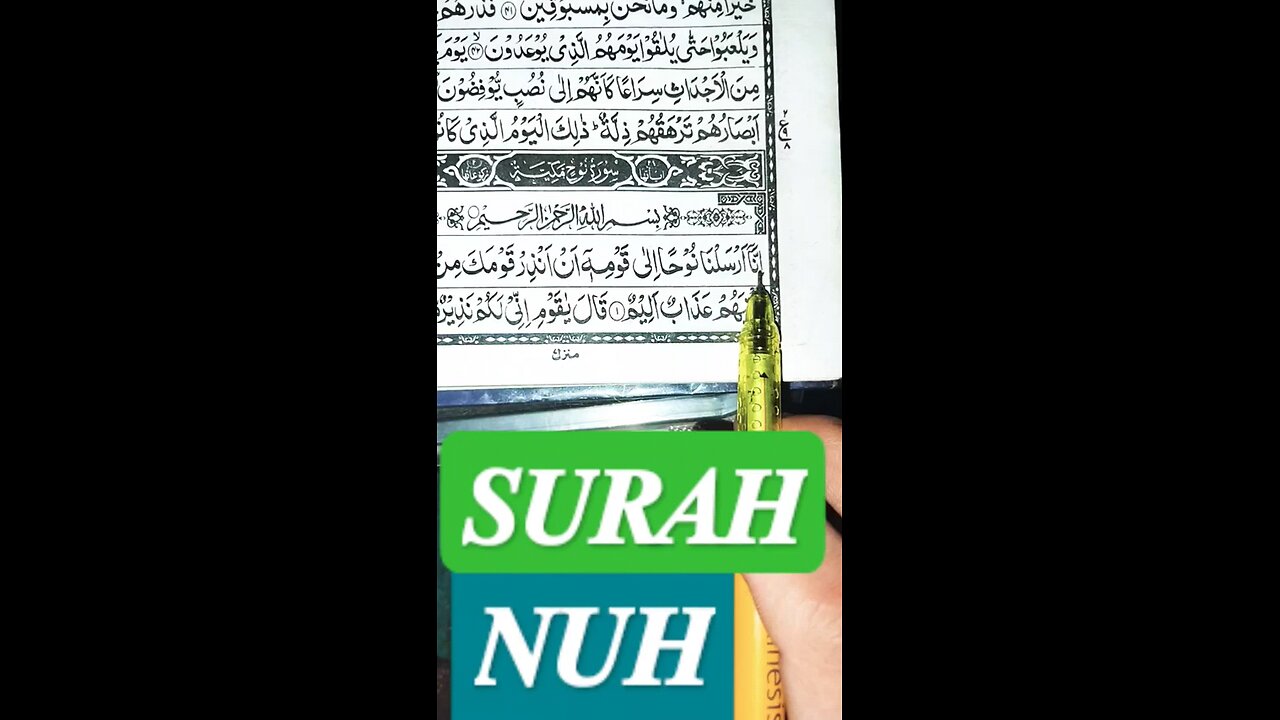 خَيْرًا مِّنْهُمْ ۙ وَمَا نَحْنُ بِمَسْبُوْقِيْنَ ﴿۴۱﴾ فَذَرْهُمْ
وَيَلْعَبُوْا حَتّٰى يُلٰقُوْا يَوْمَهُمُ الَّذِيْ يُوْعَدُوْنَ ﴿۴۲﴾ يَوْمَ
مِنَ الْاَجْدَاثِ سِرَاعًا كَاَنَّهُمْ اِلٰى نُصُبٍ يُّوْفِضُوْنَ
اَبْصَارُهُمْ تَرْهَقُهُمْ ذِلَّةٌ ؕ ذٰلِكَ الْيَوْمُ الَّذِيْ
سُوْرَةُ نُوْحٍ مَكِّيَّةٌ
بِسْمِ اللّٰهِ الرَّحْمٰنِ الرَّحِيْمِ
اِنَّاۤ اَرْسَلْنَا نُوْحًا اِلٰى قَوْمِهٖۤ اَنْ اَنْذِرْ قَوْمَكَ مِنْ
عَذَابٌ اَلِيْمٌ ﴿۱﴾ قَالَ يٰقَوْمِ اِنِّيْ لَكُمْ نَذِيْرٌ
منزل
SURAH
NUH